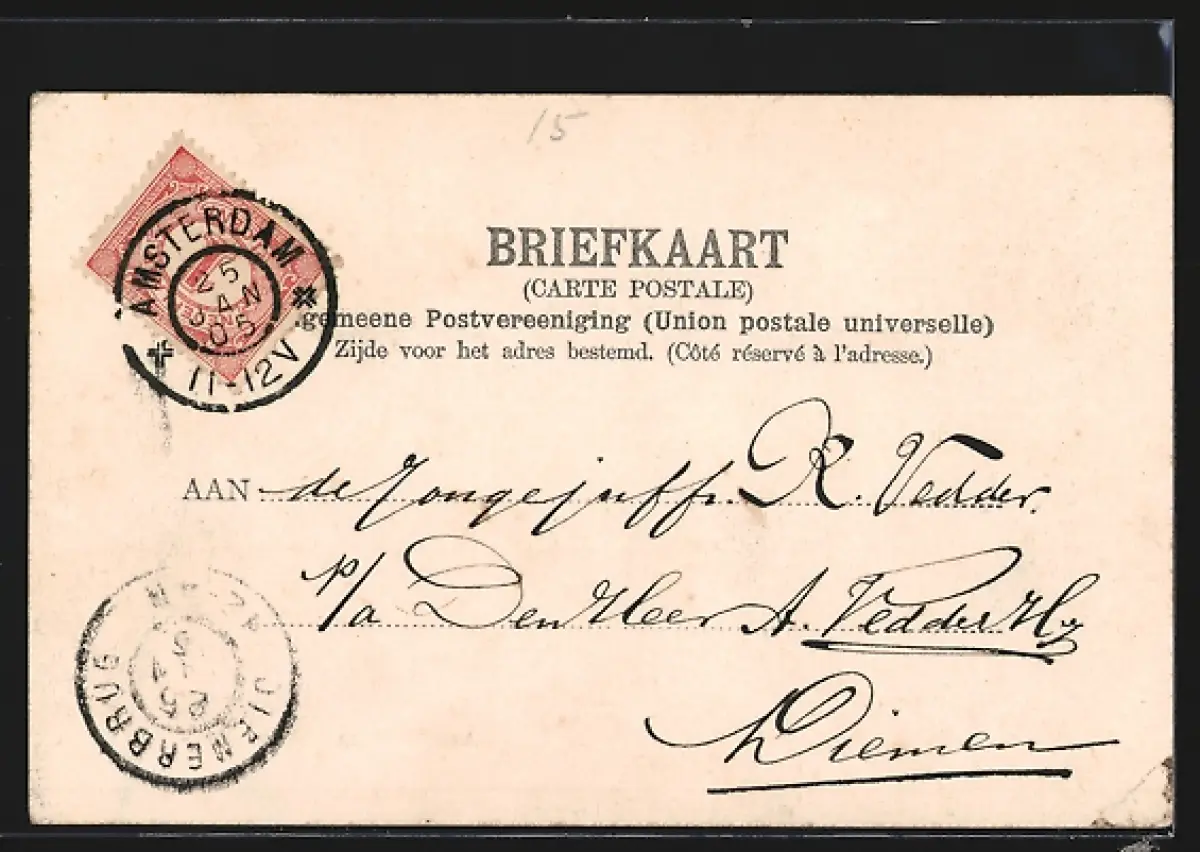 15
AMSTERDAM
25
JAN
05
11-12V
BRIEFKAART
(CARTE POSTALE)
gemeene Postvereeniging (Union postale universelle)
Zijde voor het adres bestemd. (Côté réservé à l'adresse.)
AAN de Jongejuffr. R. Vedder.
p/a Den Heer A. Vedder Hz
Diemen
DIEMERBRUG
25